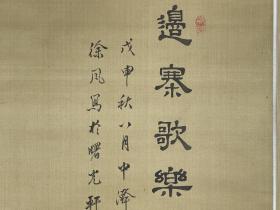 邊寨歌樂
戊申秋八月中澣
徐風寫於曙光軒